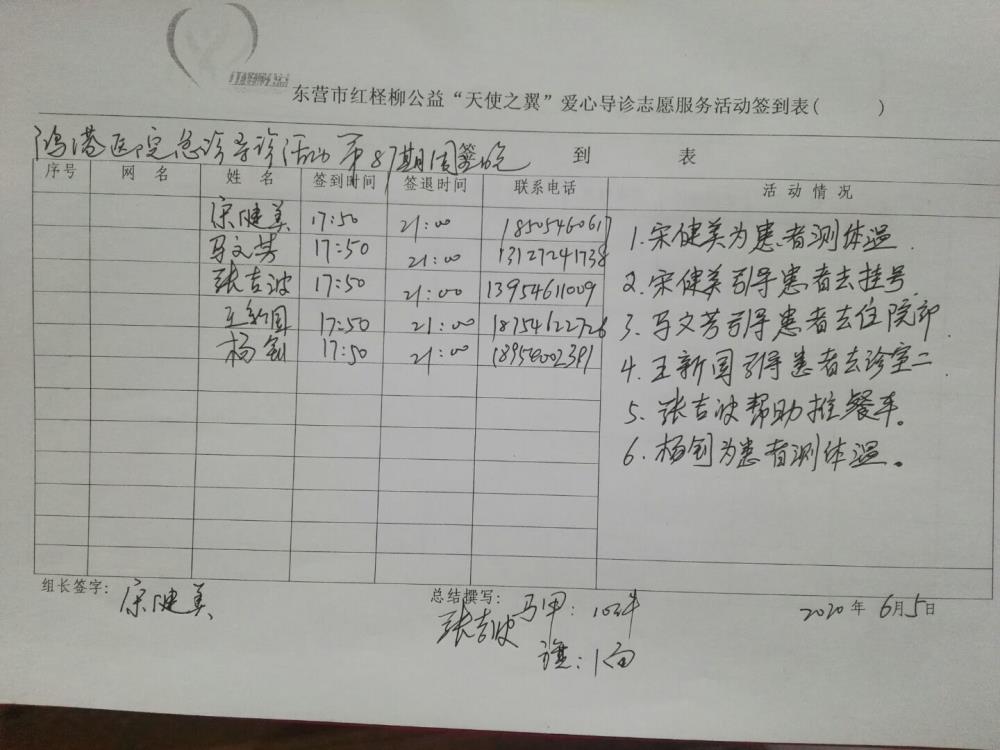 红柽柳公益
东营市红柽柳公益“天使之翼”爱心导诊志愿服务活动签到表( )
鸿港医院急诊导诊活动第87期周签晚
签 到 表
序号 网 名 姓 名 签到时间 签退时间 联系电话 活 动 情 况
宋健美 17:50 21:00 18505460617
马文芳 17:50 21:00 13127241738
张吉波 17:50 21:00 13954611009
王新国 17:50 21:00 18754622726
杨钊 17:50 21:00
1.宋健美为患者测体温.
2.宋健美引导患者去挂号.
3.马文芳引导患者去住院部.
4.王新国引导患者去诊室二
5.张吉波帮助推餐车。
6.杨钊为患者测体温。
组长签字: 宋健美
总结撰写: 张吉波
马甲: 10件
旗: 1面
2020年 6月5日